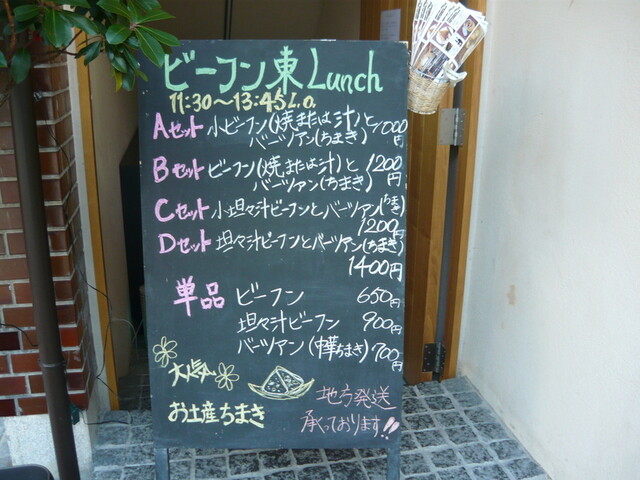 ビーフン東 Lunch
11:30～13:45 L.o.
Aセット 小ビーフン(焼または汁)と
バーツアン(ちまき) 1000円
Bセット ビーフン(焼または汁)と
バーツアン(ちまき) 1200円
Cセット 小坦々汁ビーフンとバーツアン(ちまき)
1200円
Dセット 坦々汁ビーフンとバーツアン(ちまき)
1400円
単品 ビーフン 650円
坦々汁ビーフン 900円
バーツアン(ちまき) 700円
大人気
お土産ちまき
地方発送
承っております!!